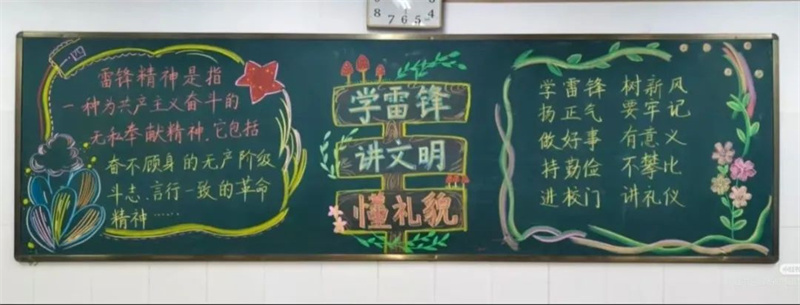 8 7 6 5 4
雷锋精神是指
一种为共产主义奋斗的
无私奉献精神.它包括
奋不顾身的无产阶级
斗志、言行一致的革命
精神……
学雷锋
讲文明
懂礼貌
学雷锋 树新风
扬正气 要牢记
做好事 有意义
持勤俭 不攀比
进校门 讲礼仪